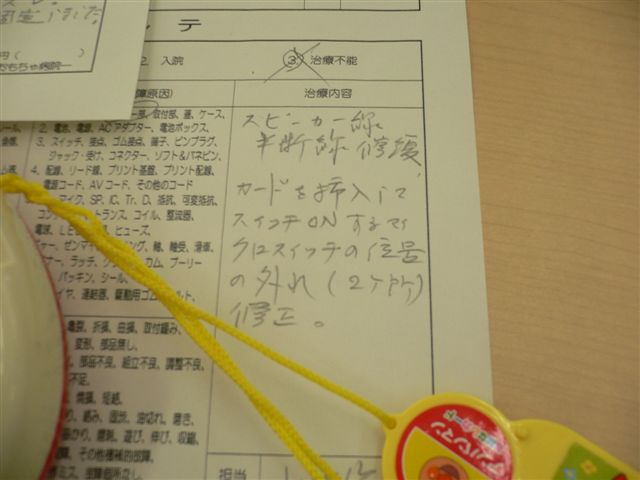 固定しました。
円(　　　)
おもちゃ病院
ルテ
2. 入院
③ 治療不能
障原因)
治療内容
部、取付部、蓋、ケース、
2. 電池、電源、ACアダプター、電池ボックス、
3. スイッチ、接点、ゴム接点、端子、ピンプラグ、
ジャック・受け、コネクター、ソフト&バネピン、
4. 配線、リード線、プリント基盤、プリント配線、
電源コード、AVコード、その他のコード
マイク、SP、IC、Tr、D、抵抗、可変抵抗、
トランス、コイル、整流器、
ヒューズ、
軸、軸受、滑車、
カム、プーリー
パッキン、シール、
イヤ、連結器、駆動用ゴム
亀裂、折損、曲損、取付緩み、
変形、部品無し、
部品不良、組立不良、調整不良、
不足、
焼損、短絡、
り、緩み、固渋、油切れ、磨き、
掛かり、磨耗、遊び、伸び、収縮、
、その他機械的故障、
スピーカー線
半断線 修復
カードを挿入して
スイッチONするマイ
クロスイッチの位置
の外れ(2ヶ所)
修正。
担当
アンパンマン